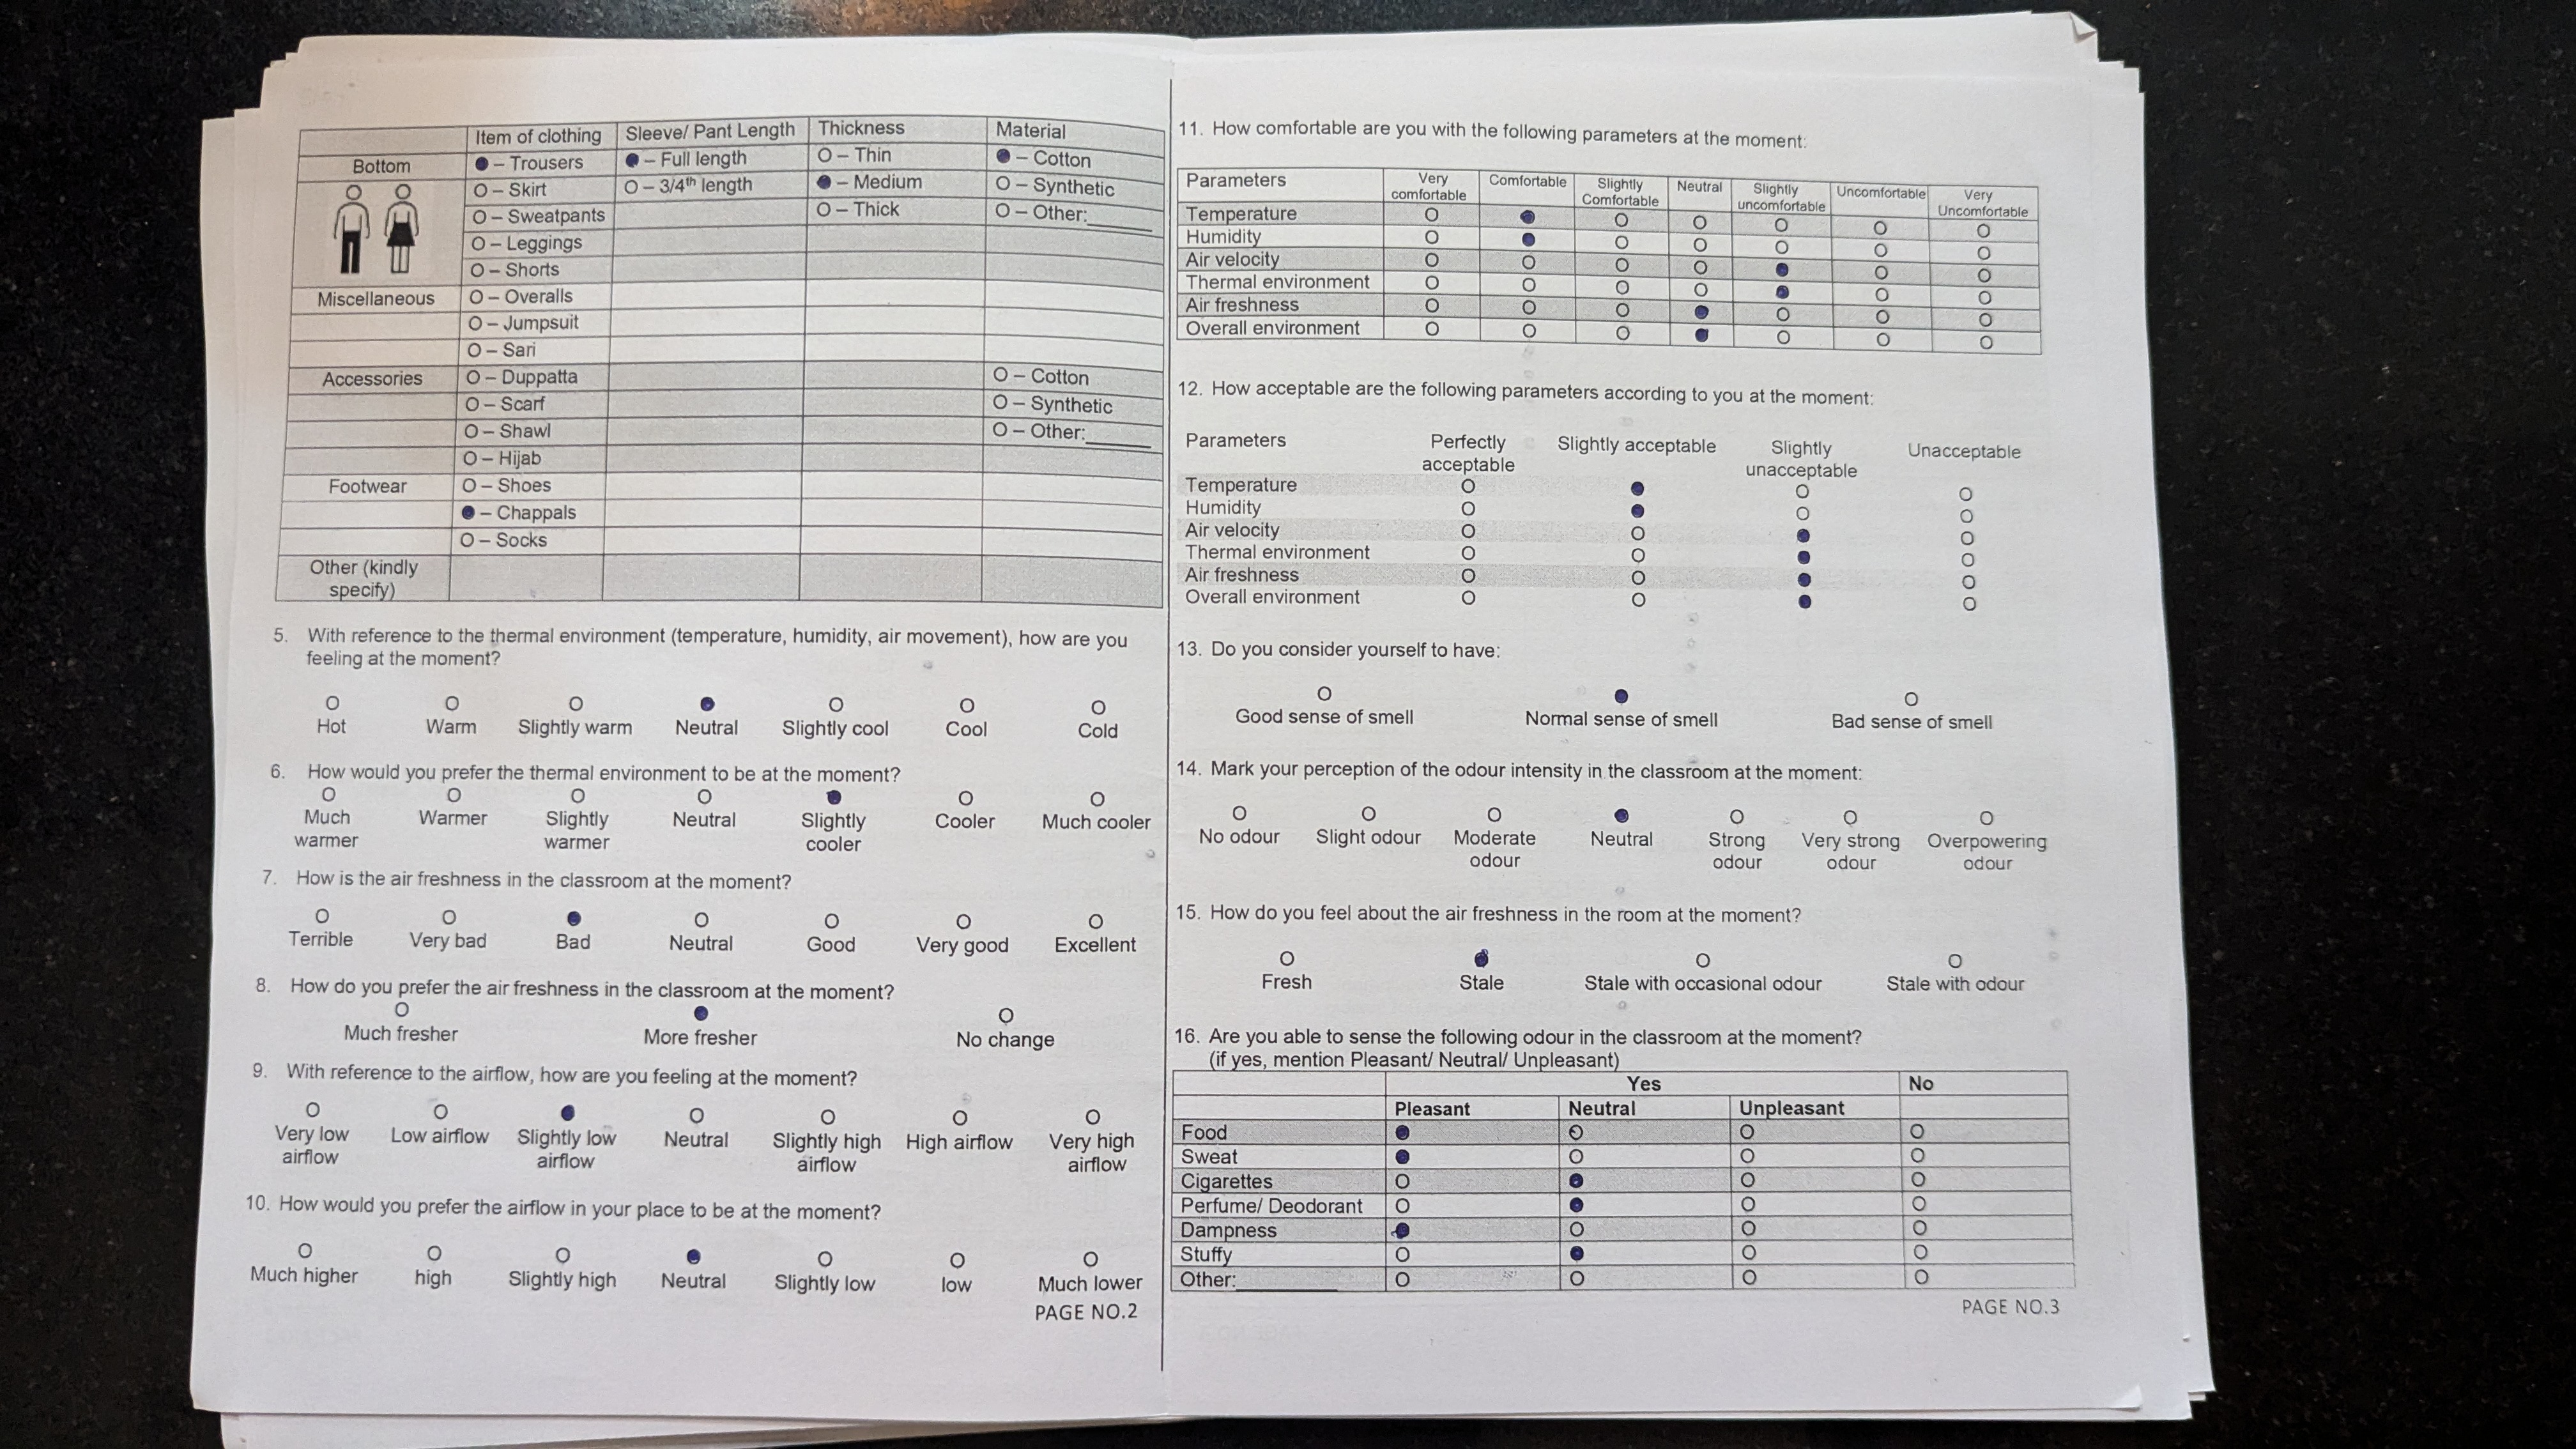 Item of clothing Sleeve/ Pant Length Thickness Material
Bottom ● – Trousers ● – Full length O – Thin ● – Cotton
O – Skirt O – 3/4th length ● – Medium O – Synthetic
O – Sweatpants O – Thick O – Other:______
O – Leggings
O – Shorts
Miscellaneous O – Overalls
O – Jumpsuit
O – Sari
Accessories O – Duppatta O – Cotton
O – Scarf O – Synthetic
O – Shawl O – Other:______
O – Hijab
Footwear O – Shoes
● – Chappals
O – Socks
Other (kindly
specify)
5. With reference to the thermal environment (temperature, humidity, air movement), how are you
feeling at the moment?
O O O ● O O O
Hot Warm Slightly warm Neutral Slightly cool Cool Cold
6. How would you prefer the thermal environment to be at the moment?
O O O O ● O O
Much Warmer Slightly Neutral Slightly Cooler Much cooler
warmer warmer cooler
7. How is the air freshness in the classroom at the moment?
O O ● O O O O
Terrible Very bad Bad Neutral Good Very good Excellent
8. How do you prefer the air freshness in the classroom at the moment?
O ● O
Much fresher More fresher No change
9. With reference to the airflow, how are you feeling at the moment?
O O ● O O O O
Very low Low airflow Slightly low Neutral Slightly high High airflow Very high
airflow airflow airflow airflow
10. How would you prefer the airflow in your place to be at the moment?
O O O ● O O O
Much higher high Slightly high Neutral Slightly low low Much lower
PAGE NO.2
11. How comfortable are you with the following parameters at the moment:
Parameters Very Comfortable Slightly Neutral Slightly Uncomfortable Very
comfortable Comfortable uncomfortable Uncomfortable
Temperature O ● O O O O O
Humidity O ● O O O O O
Air velocity O O O O ● O O
Thermal environment O O O O ● O O
Air freshness O O O ● O O O
Overall environment O O O ● O O O
12. How acceptable are the following parameters according to you at the moment:
Parameters Perfectly Slightly acceptable Slightly Unacceptable
acceptable unacceptable
Temperature O ● O O
Humidity O ● O O
Air velocity O O ● O
Thermal environment O O ● O
Air freshness O O ● O
Overall environment O O ● O
13. Do you consider yourself to have:
O ● O
Good sense of smell Normal sense of smell Bad sense of smell
14. Mark your perception of the odour intensity in the classroom at the moment:
O O O ● O O O
No odour Slight odour Moderate Neutral Strong Very strong Overpowering
odour odour odour odour
15. How do you feel about the air freshness in the room at the moment?
O ● O O
Fresh Stale Stale with occasional odour Stale with odour
16. Are you able to sense the following odour in the classroom at the moment?
(if yes, mention Pleasant/ Neutral/ Unpleasant)
Yes No
Pleasant Neutral Unpleasant
Food ● O O O
Sweat ● O O O
Cigarettes O ● O O
Perfume/ Deodorant O ● O O
Dampness ● O O O
Stuffy O ● O O
Other:__________ O O O O
PAGE NO.3